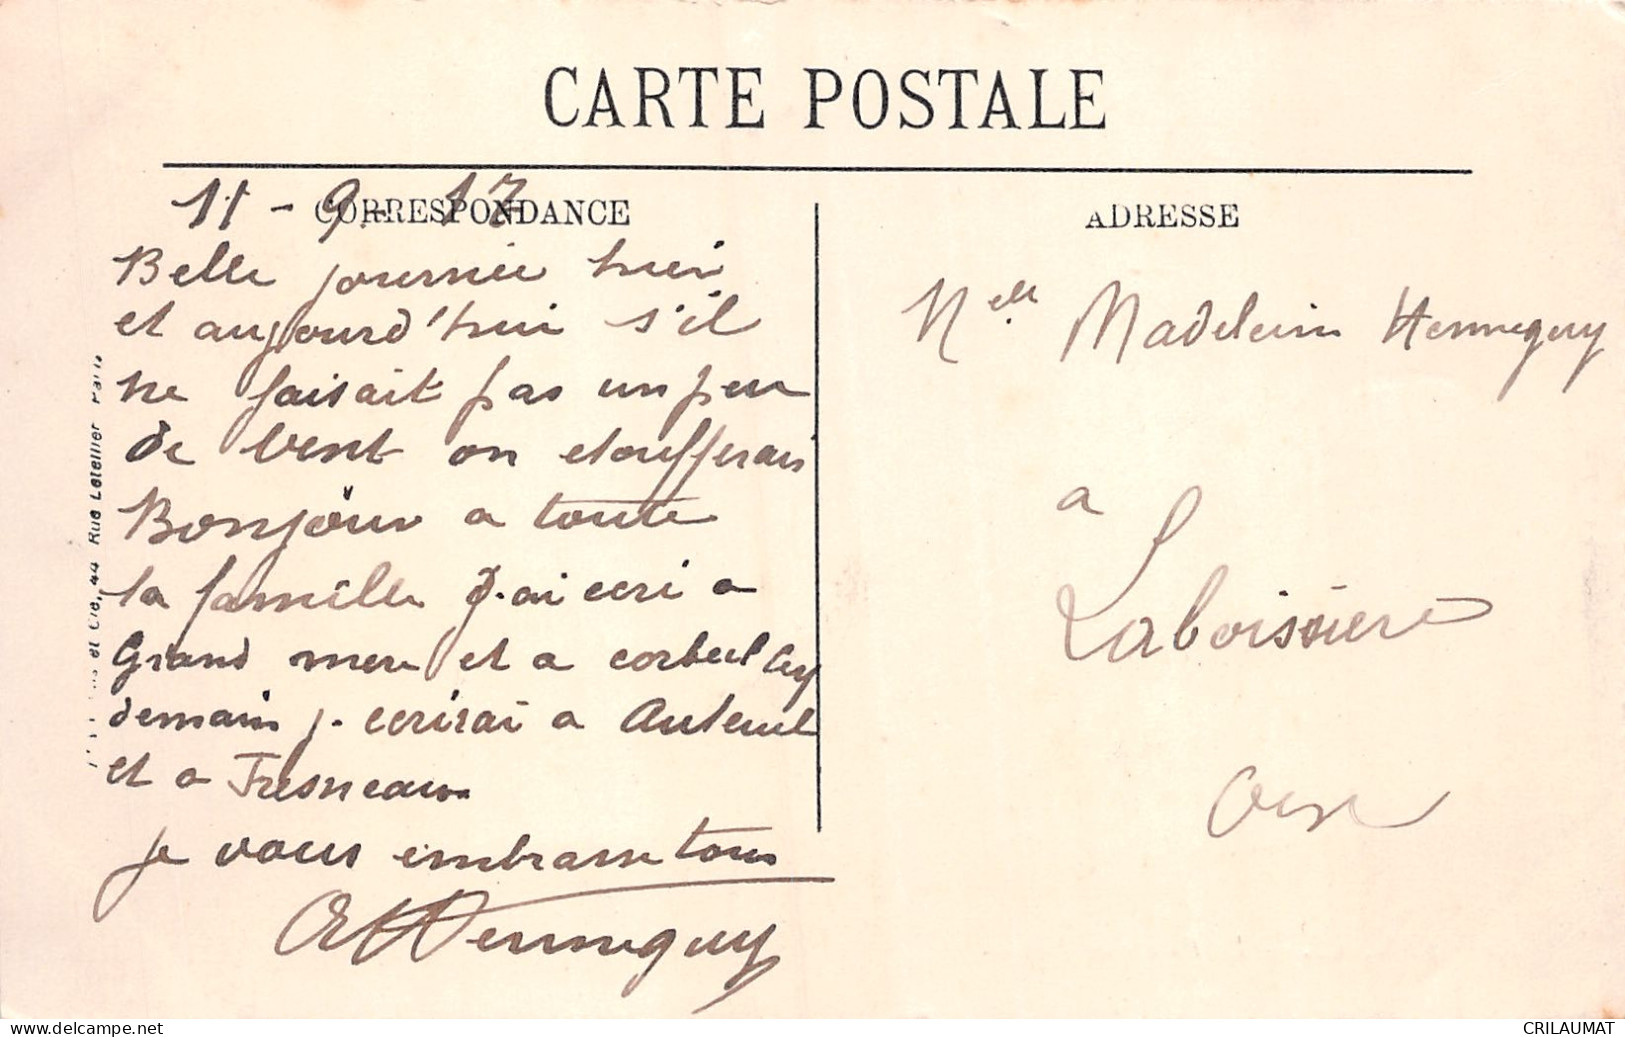 CARTE POSTALE
CORRESPONDANCE
11 - 9 - 17
Belle journée hier
et aujourd'hui s'il
ne faisait pas un peu
de vent on etoufferais
Bonjour a toute
la famille J.ai ecri a
Grand mere et a corbeil Cey
demain j. ecrirai a Auteuil
et a Fresneaux
je vous embrasse tous
Henneguy
ADRESSE
Melle Madeleine Henneguy
a
Laboissiere
Oise
et Cie, 44 Rue Letellier Paris
CRILAUMAT
www.delcampe.net